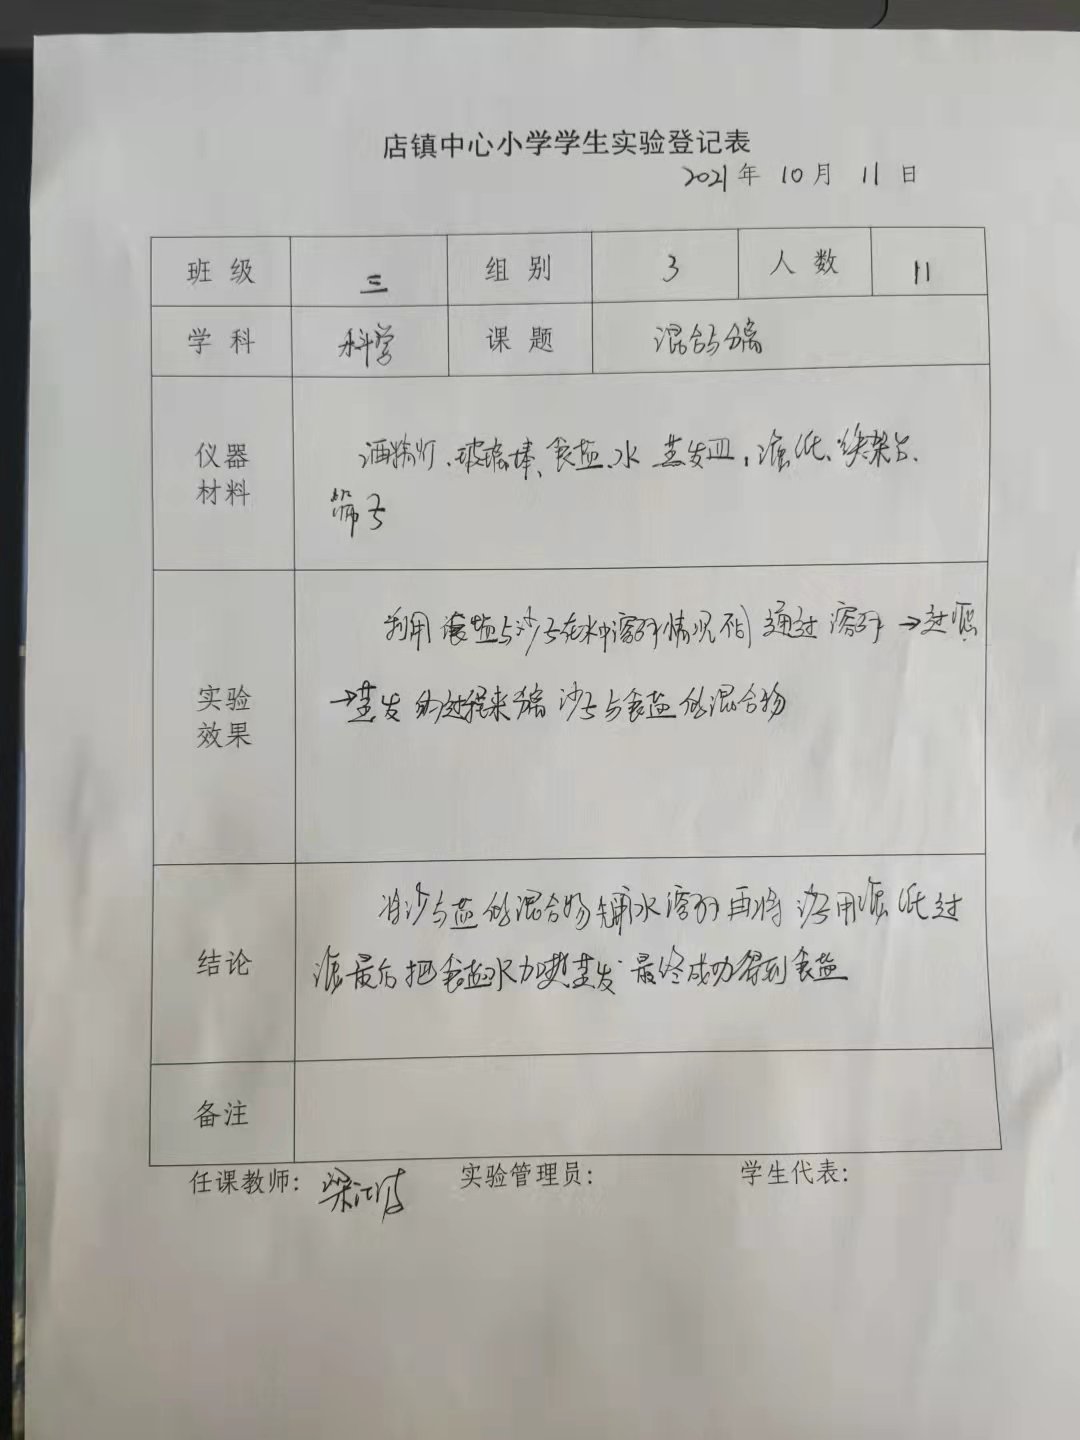 店镇中心小学学生实验登记表
2021年 10月 11日
班级 三 组别 3 人数 11
学科 科学 课题 混合与分离
仪器
材料
酒精灯、玻璃棒、食盐、水 蒸发皿,滤纸、铁架台、
筛子
实验
效果
利用食盐与沙子在水中溶解情况不同 通过溶解→过滤
→蒸发的过程来分离 沙子与食盐的混合物
结论
将沙与盐的混合物先用水溶解再将 用滤纸过
滤最后把食盐水加热蒸发 最终成功得到食盐
备注
任课教师: 梁江波 实验管理员: 学生代表: